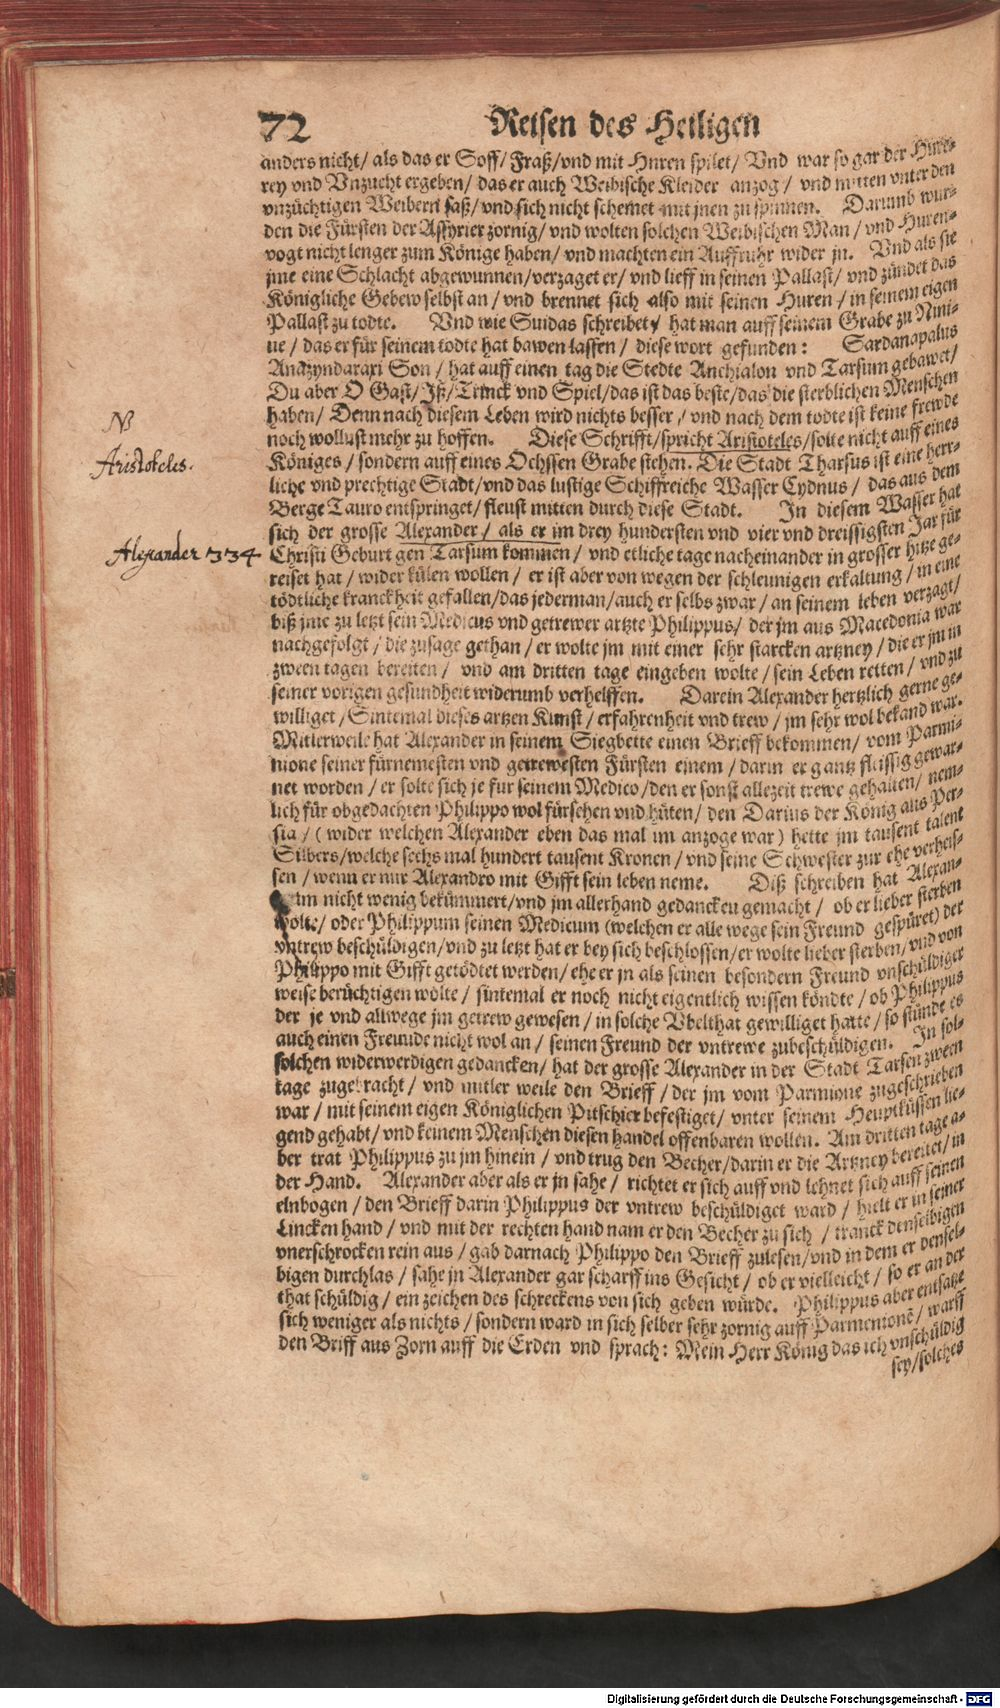 72 Reisen des Heiligen
anders nicht/ als das er Soff/ Fraß/ vnd mit Huren spilet/ Vnd war so gar der Hure-
rey vnd Vnzucht ergeben/ das er auch Weibische Kleider anzog/ vnd mitten vnter den
vnzüchtigen Weibern saß/ vnd sich nicht schemet mit jnen zu spinnen. Darumb wur-
den die Fürsten der Assyrier zornig/ vnd wolten solchen Weibischen Man/ vnd Huren-
vogt nicht lenger zum Könige haben/ vnd machten ein Auffruhr wider jn. Vnd als sie
jme eine Schlacht abgewunnen/ verzaget er/ vnd lieff in seinen Pallast/ vnd zündet das
Königliche Gebew selbst an/ vnd brennet sich also mit seinen Huren/ in seinem eigen
Pallast zu todte. Vnd wie Suidas schreibet/ hat man auff seinem Grabe zu Nini-
ue/ das er für seinem todte hat bawen lassen/ diese wort gefunden: Sardanapalus
Anazyndaraxi Son/ hat auff einen tag die Stedte Anchialon vnd Tarsum gebawet/
Du aber O Gast/ Iß/ Trinck vnd Spiel/ das ist das beste/ das die sterblichen Menschen
haben/ Denn nach diesem Leben wird nichts besser/ vnd nach dem todte ist keine frewde
noch wollust mehr zu hoffen. Diese Schrifft/ spricht Aristoteles/ solte nicht auff eines
Königes/ sondern auff eines Ochssen Grabe stehen. Die Stadt Tharsus ist eine herr-
liche vnd prechtige Stadt/ vnd das lustige Schiffreiche Wasser Cydnus/ das aus dem
Berge Tauro entspringet/ fleust mitten durch diese Stadt. In diesem Wasser hat
sich der grosse Alexander/ als er im drey hundersten vnd vier vnd dreissigsten Jar für
Christi Geburt gen Tarsum kommen/ vnd etliche tage nacheinander in grosser hitze ge-
reiset hat/ wider külen wollen/ er ist aber von wegen der schleunigen erkaltung/ in eine
tödtliche kranckheit gefallen/ das jederman/ auch er selbs zwar/ an seinem leben verzagt/
biß jme zu letzt sein Medicus vnd getrewer artzte Philippus/ der jm aus Macedonia war
nachgefolgt/ die zusage gethan/ er wolte jm mit einer sehr starcken artzney/ die er jm in
zween tagen bereiten/ vnd am dritten tage eingeben wolte/ sein Leben retten/ vnd zu
seiner vorigen gesundheit widerumb verhelffen. Darein Alexander hertzlich gerne ge-
williget/ Sintemal dieses artzen Kunst/ erfahrenheit vnd trew/ jm sehr wol bekand war.
Mitlerweile hat Alexander in seinem Siegbette einen Brieff bekommen/ vom Parmi-
nione seiner fürnemesten vnd getrewesten Fürsten einem/ darin er gantz fleissig gewar-
net worden/ er solte sich je für seinem Medico/ den er sonst allezeit trewe gehalten/ nem-
lich für obgedachten Philippo wol fürsehen vnd hüten/ den Darius der König aus Per-
sia/ (wider welchen Alexander eben das mal im anzoge war) hette jm tausent talent
Silbers/ welche sechs mal hundert tausent Kronen/ vnd seine Schwester zur ehe verheis-
sen/ wenn er nur Alexandro mit Gifft sein leben neme. Diß schreiben hat Alexan-
drum nicht wenig bekümmert/ vnd jm allerhand gedancken gemacht/ ob er lieber sterben
wolte/ oder Philippum seinen Medicum (welchen er alle wege sein Freund gespüret) der
vntrew beschüldigen/ vnd zu letzt hat er bey sich beschlossen/ er wolte lieber sterben/ vnd von
Philippo mit Gifft getödtet werden/ ehe er jn als seinen besondern Freund vnschüldiger
weise berüchtigen wolte/ sintemal er noch nicht eigentlich wissen köndte/ ob Philippus
der je vnd allwege jm getrew gewesen/ in solche Vbelthat gewilliget hatte/ so stünde es
auch einen Freunde nicht wol an/ seinen Freund der vntrewe zubeschüldigen. In sol-
solchen widerwerdigen gedancken/ hat der grosse Alexander in der Stadt Tarsen zween
tage zugebracht/ vnd mitler weile den Brieff/ der jm vom Parmione zugeschrieben
war/ mit seinem eigen Königlichen Pitschier befestiget/ vnter seinem Heuptküssen lie-
gend gehabt/ vnd keinem Menschen diesen handel offenbaren wollen. Am dritten tage a-
ber trat Philippus zu jm hinein/ vnd trug den Becher/ darin er die Artzney bereitet/ in
der Hand. Alexander aber als er jn sahe/ richtet er sich auff vnd lehnet sich auff seinen
elnbogen/ den Brieff darin Philippus der vntrew beschüldiget ward/ hielt er in seiner
Lincken hand/ vnd mit der rechten hand nam er den Becher zu sich/ tranck denselbigen
vnerschrocken rein aus/ gab darnach Philippo den Brieff zulesen/ vnd in dem er densel-
bigen durchlas/ sahe jn Alexander gar scharff ins Gesicht/ ob er vielleicht/ so er an der
that schüldig/ ein zeichen des schreckens von sich geben würde. Philippus aber entsatzte
sich weniger als nichts/ sondern ward in sich selber sehr zornig auff Parmenionē/ warff
den Briff aus Zorn auff die Erden vnd sprach: Mein Herr König das ich vnschüldig
sey/ solches
NB
Aristoteles.
Alexander 334
Digitalisierung gefördert durch die Deutsche Forschungsgemeinschaft - DFG